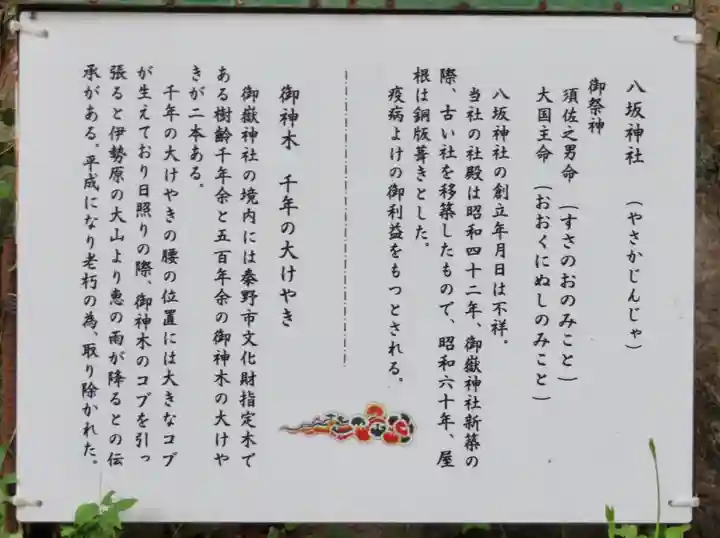 八坂神社　(やさかじんじゃ)
御祭神
須佐之男命　(すさのおのみこと)
大国主命　(おおくにぬしのみこと)
八坂神社の創立年月日は不祥。
当社の社殿は昭和四十二年、御嶽神社新築の
際、古い社を移築したもので、昭和六十年、屋
根は銅版葺きとした。
疫病よけの御利益をもつとされる。
御神木　千年の大けやき
御嶽神社の境内には秦野市文化財指定木で
ある樹齢千年余と五百年余の御神木の大けや
きが二本ある。
千年の大けやきの腰の位置には大きなコブ
が生えており日照りの際、御神木のコブを引っ
張ると伊勢原の大山より恵の雨が降るとの伝
承がある。平成になり老朽の為、取り除かれた。